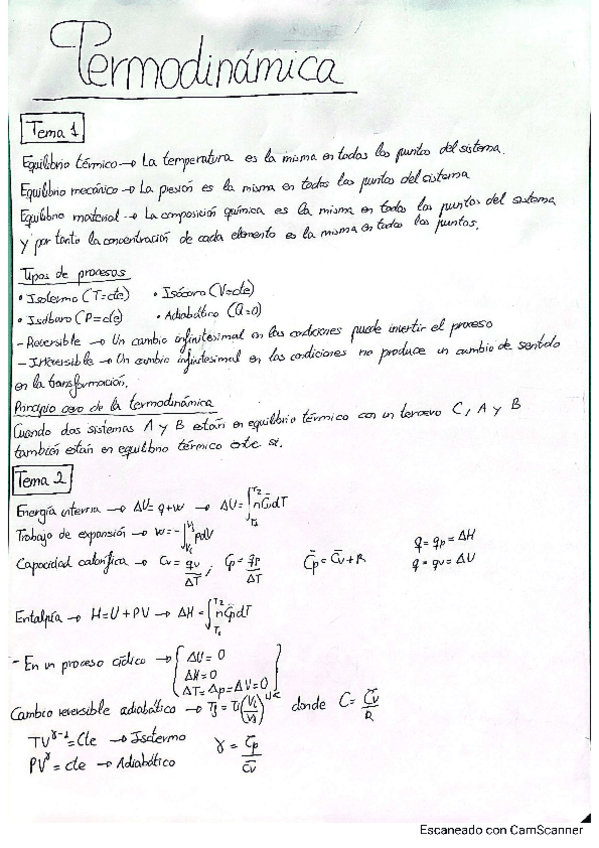 Termodinámica
Tema 1
Equilibrio térmico → La temperatura es la misma en todos los puntos del sistema.
Equilibrio mecánico → La presión es la misma en todos los puntos del sistema
Equilibrio material → La composición química es la misma en todos los puntos del sistema
y por tanto la concentración de cada elemento es la misma en todos los puntos.
Tipos de procesos
• Isotermo (T=cte) • Isócoro (V=cte)
• Isóbaro (P=cte) • Adiabático (Q=0)
- Reversible → Un cambio infinitesimal en las condiciones puede invertir el proceso
- Irreversible → Un cambio infinitesimal en las condiciones no produce un cambio de sentido
en la transformación.
Principio cero de la termodinámica
Cuando dos sistemas A y B están en equilibrio térmico con un tercero C, A y B
también están en equilibrio térmico entre sí.
Tema 2
Energía interna → ΔU = q + w → ΔU = ∫_{T1}^{T2} n C̄v dT
Trabajo de expansión → w = -∫_{Vi}^{Vf} p dV
Capacidad calorífica → Cv = qv/ΔT ; Cp = qp/ΔT C̄p = C̄v + R q = qp = ΔH
q = qv = ΔU
Entalpía → H = U + PV → ΔH = ∫_{T1}^{T2} n C̄p dT
- En un proceso cíclico → { ΔU = 0
ΔH = 0
ΔT = Δp = ΔV = 0 }
Cambio reversible adiabático → Tf = Ti (Vi/Vf)^{1/C} donde C = C̄v/R
TV^{γ-1} = Cte → Isotermo γ = C̄p/C̄v
PV^γ = cte → Adiabático
Escaneado con CamScanner